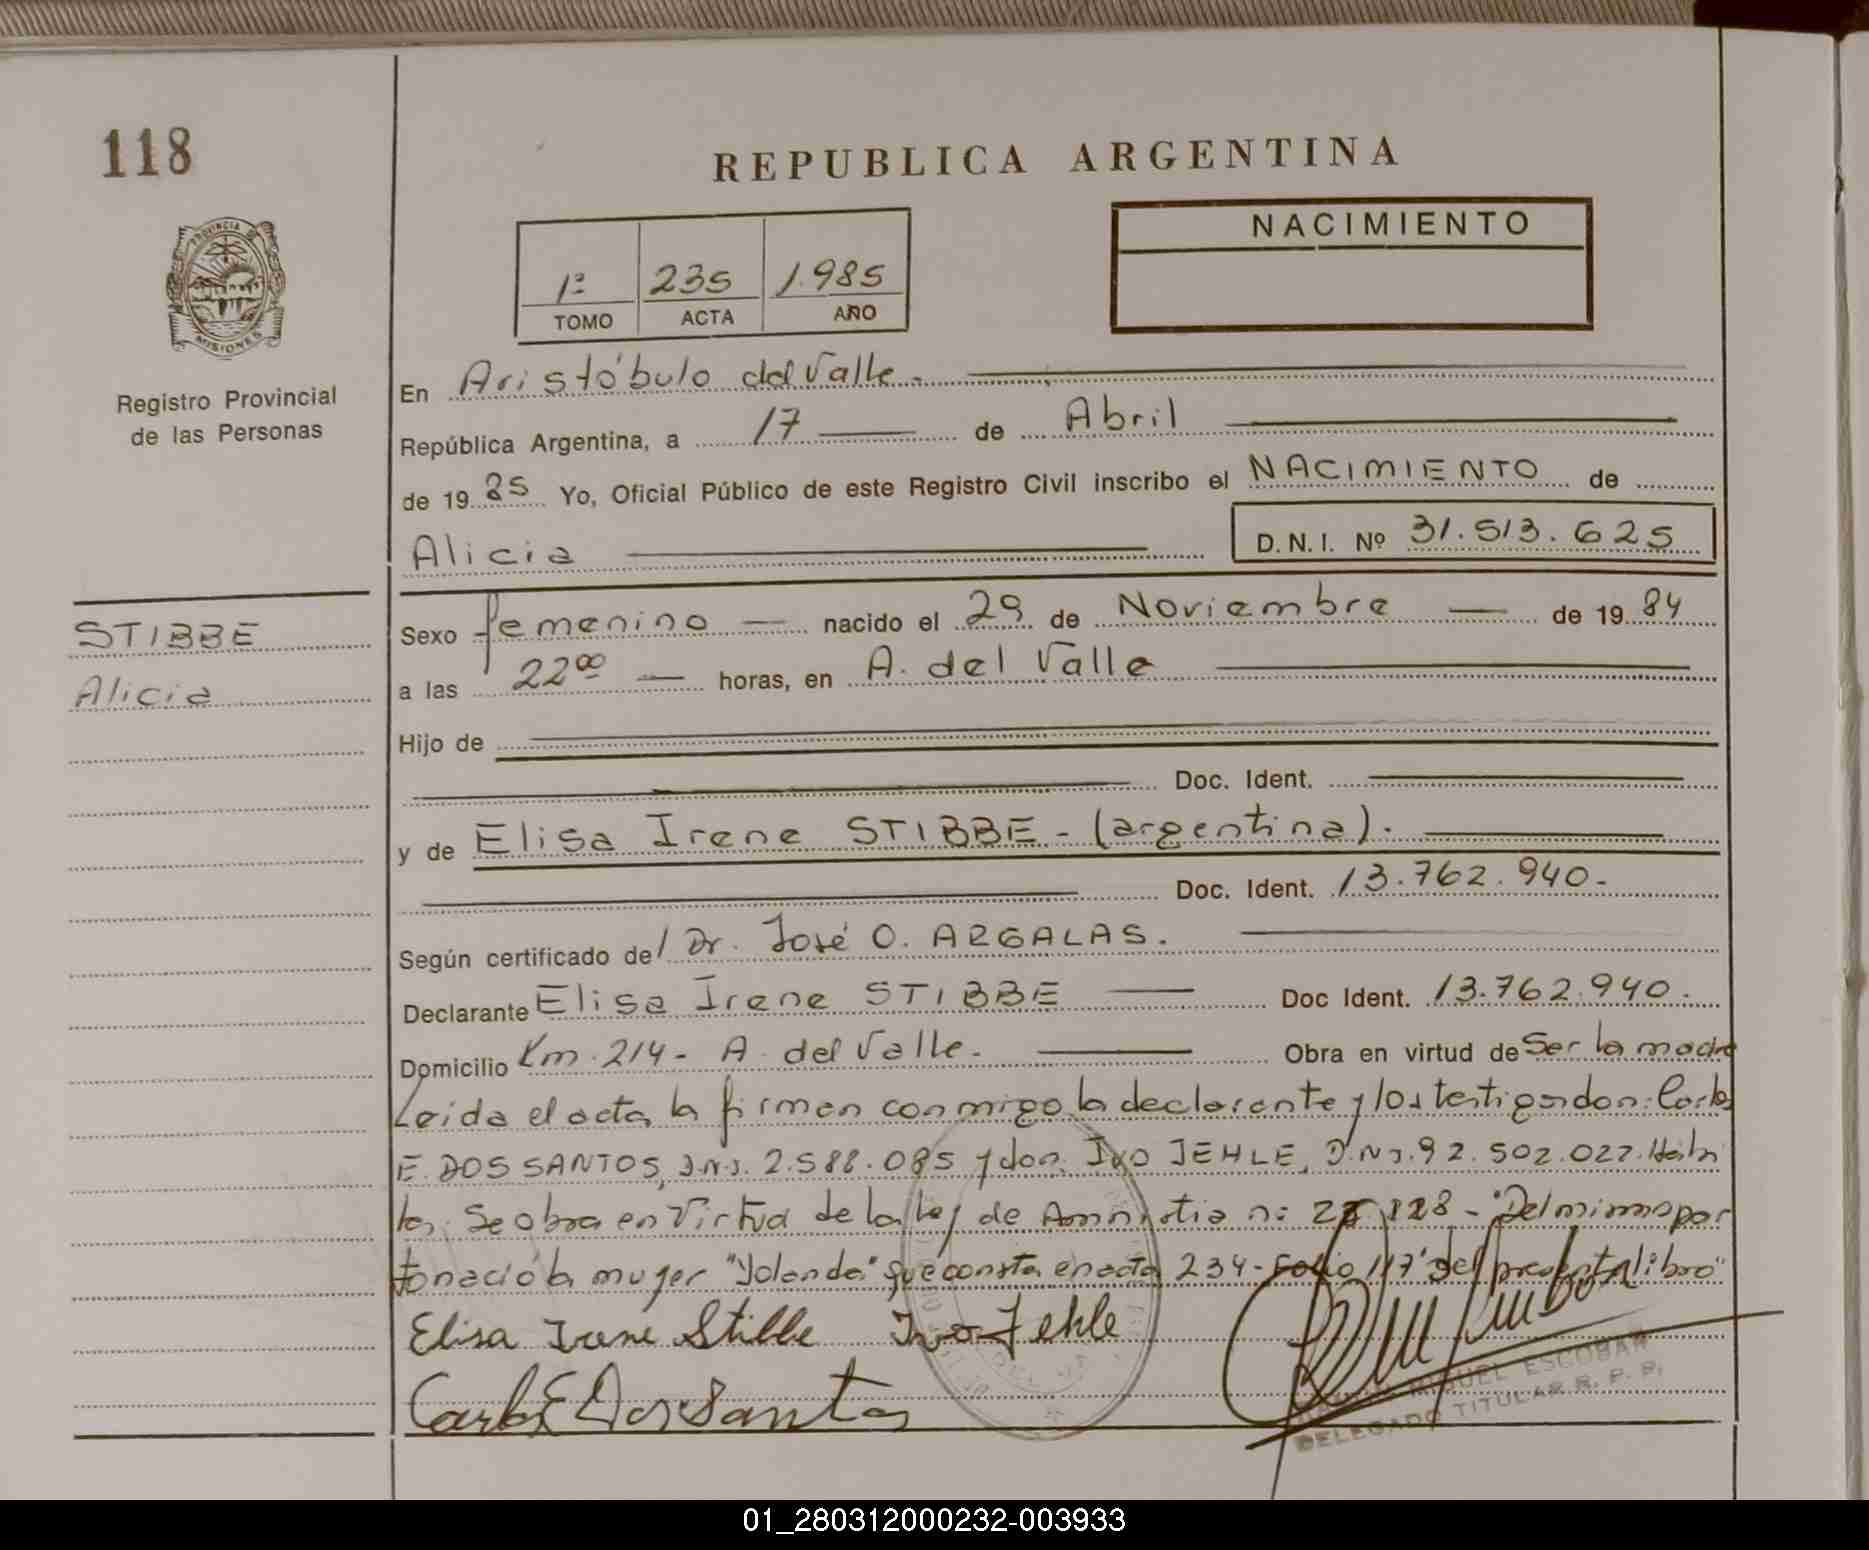 118
REPUBLICA ARGENTINA
PROVINCIA DE
MISIONES
Registro Provincial
de las Personas
1º 235 1.985
TOMO ACTA AÑO
NACIMIENTO
En Aristóbulo del Valle.
República Argentina, a 17 de Abril
de 19 85 Yo, Oficial Público de este Registro Civil inscribo el NACIMIENTO de
Alicia D.N.I. Nº 31.513.625
STIBBE
Alicia
Sexo femenino nacido el 29 de Noviembre de 19 84
a las 22 00 horas, en A. del Valle
Hijo de
Doc. Ident.
y de Elisa Irene STIBBE - (argentina).
Doc. Ident. 13.762.940.-
Según certificado de/ Dr. José O. ARGALAS.
Declarante Elisa Irene STIBBE Doc Ident. 13.762.940.
Domicilio Km. 214 - A. del Valle. Obra en virtud de Ser la madre
Leida el acta, la firman conmigo la declarante y los testigos don: Carlos
E. DOS SANTOS, D.N.I. 2.588.085 y don Ivo JEHLE, D.N.I. 92.502.027.
Se obra en Virtud de la Ley de Amnistia nº - "Del mismo par
to nació la mujer "Yolanda" que consta en acta 234 - Folio 117 del presente libro"
Elisa Irene Stibbe Ivo Jehle
Carlos E Dos Santos
MIGUEL ESCOBAR
DELEGADO TITULAR R. P. P.
01_280312000232-003933